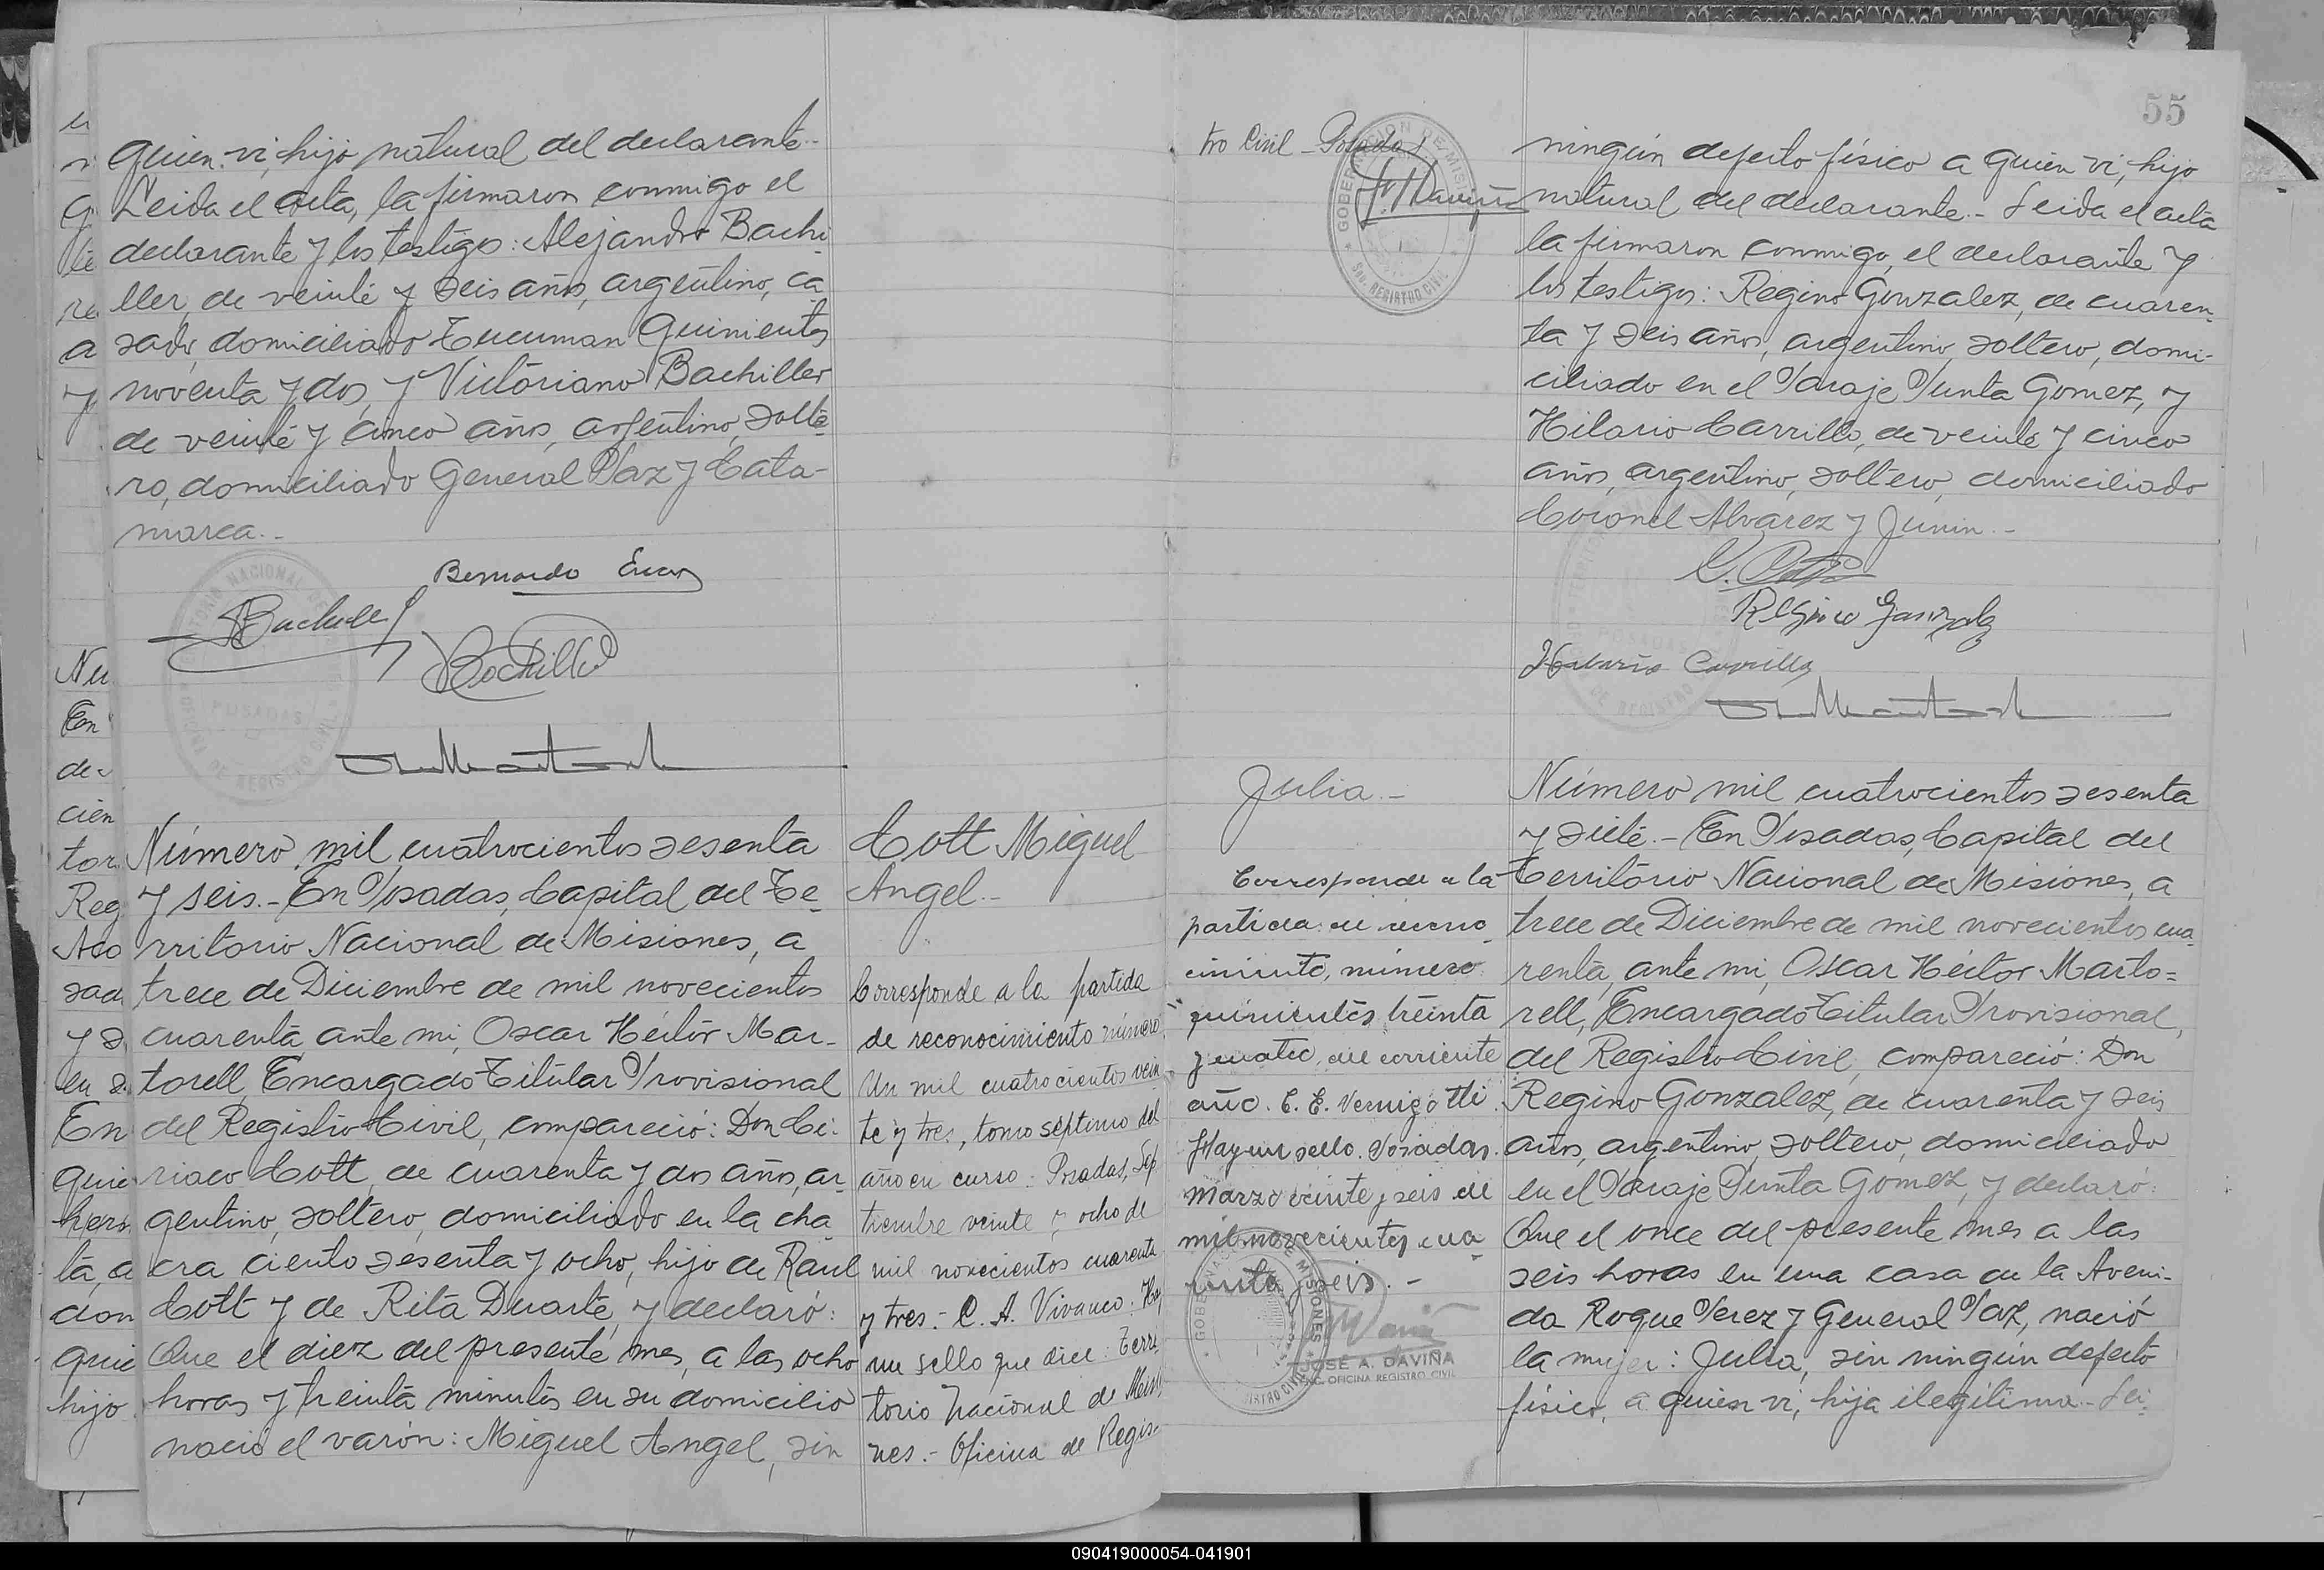 quien vi, hijo natural del declarante.-
Leida el acta, la firmaron conmigo el
declarante y los testigos: Alejandro Bachi
ller, de veinte y seis años, argentino, ca
sado, domiciliado Tucuman Quinientos
noventa y dos, y Victoriano Bachiller
de veinte y cinco años, argentino, solte-
ro, domiciliado General Paz y Cata-
marca.-
Bernardo
ABachiller
VBachiller
POSADAS
Número mil cuatrocientos sesenta
y seis.- En Posadas, Capital del Te-
rritorio Nacional de Misiones, a
trece de Diciembre de mil novecientos
cuarenta ante mi, Oscar Héctor Mar-
torell, Encargado Titular Provisional
del Registro Civil, compareció: Don Ci-
riaco Cott, de cuarenta y dos años, ar-
gentino, soltero, domiciliado en la cha
cra ciento sesenta y ocho, hijo de Raul
Cott y de Rita Duarte, y declaró:
Que el diez del presente mes, a las ocho
horas y treinta minutos en su domicilio
nació el varón: Miguel Angel, sin
Cott Miguel
Angel.-
Corresponde a la partida
de reconocimiento número
Un mil cuatrocientos vein
te y tres, tomo septimo del
año en curso. Posadas, Sep
tiembre veinte y ocho de
mil novecientos cuarenta
y tres.- C. A. Vivanco. Hay
un sello que dice: Terri
torio Nacional de Misio
nes.- Oficina de Regis-
tro Civil - Posadas
55
ningún defecto físico a quien vi, hijo
natural del declarante.- Leida el acta
la firmaron conmigo, el declarante y
los testigos: Regino Gonzalez, de cuaren-
ta y seis años, argentino, soltero, domi-
ciliado en el Paraje Punta Gomez, y
Hilario Carrillo, de veinte y cinco
años, argentino, soltero, domiciliado
Coronel Alvarez y Junin.-
C. Cott
Regino Gonzalez
Hilario Carrillo
Julia.-
Corresponde a la
partida de recono-
cimiento, número
quinientos treinta
y cuatro, del corriente
año. C. E. Vernigotti.
Hay un sello. Posadas.
Marzo veinte y seis de
mil novecientos cua-
renta y seis.-
JOSÉ A. DAVIÑA
ENC. OFICINA REGISTRO CIVIL
Número mil cuatrocientos sesenta
y siete.- En Posadas, Capital del
Territorio Nacional de Misiones, a
trece de Diciembre de mil novecientos cua-
renta, ante mi, Oscar Héctor Marto=
rell, Encargado Titular Provisional,
del Registro Civil, compareció: Don
Regino Gonzalez, de cuarenta y seis
años, argentino, soltero, domiciliado
en el Paraje Punta Gomez, y declaró:
Que el once del presente mes a las
seis horas en una casa de la Aveni-
da Roque Perez y General Paz, nació
la mujer: Julia, sin ningún defecto
físico, a quien vi, hija ilegítima.- Lei-
090419000054-041901